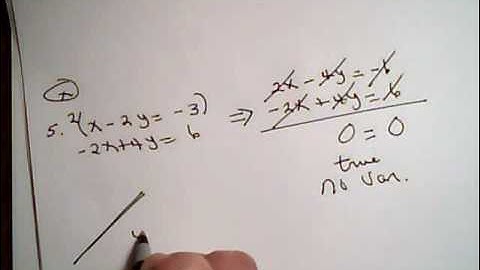 5. 2(x - 2y = -3)
-2x + 4y = 6
⇒ 2x - 4y = -6
-2x + 4y = 6
0 = 0
true
no var.